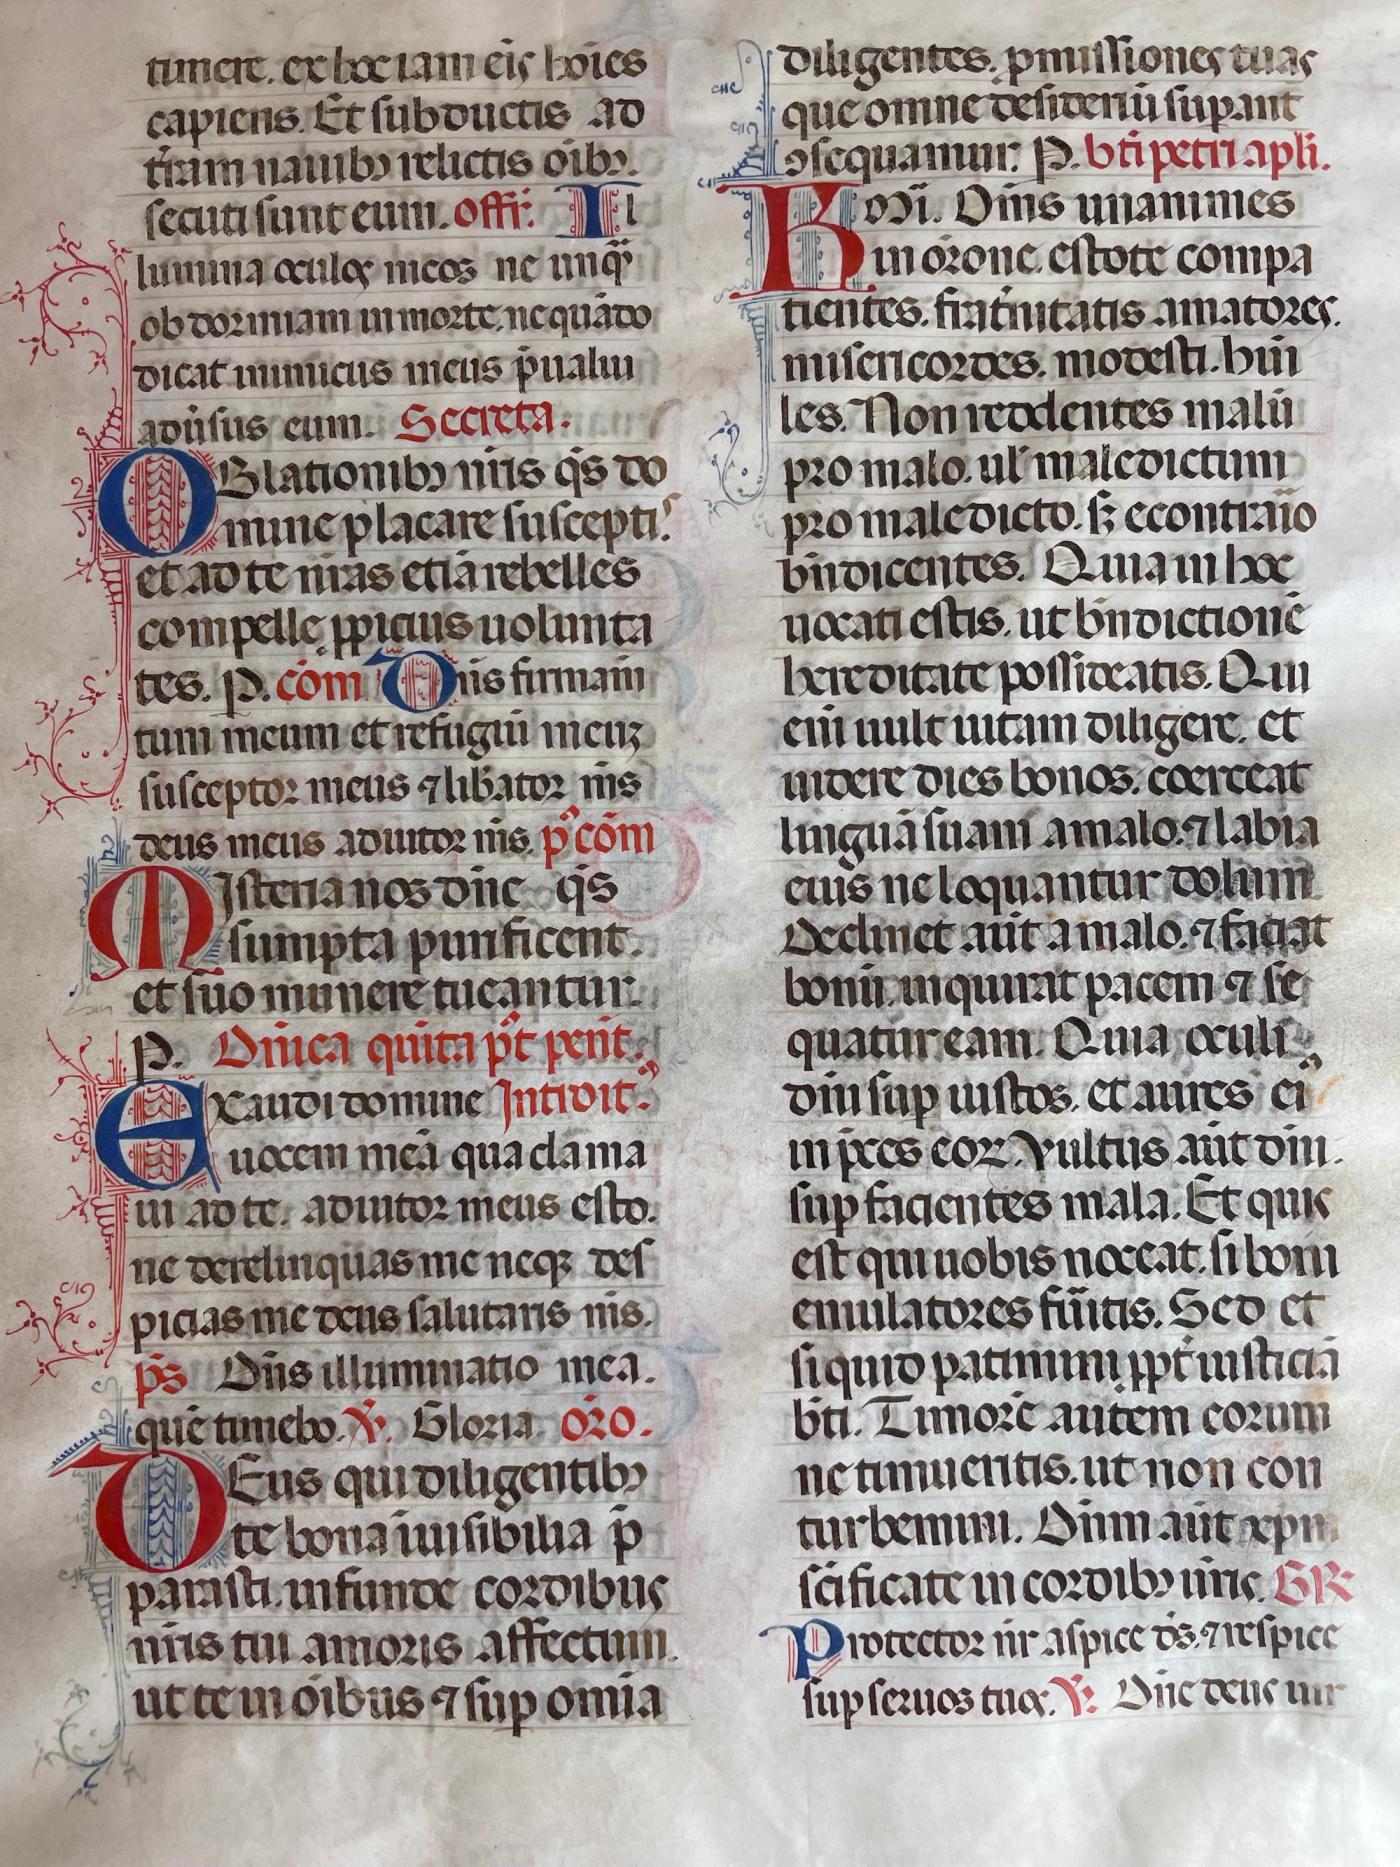 timere. ex hoc iam eis hoı̅es
capiens. Et subductis ad
tr̅am nauibꝫ relictis oı̅bꝫ.
secuti sunt eum. offr̅. Il
lumina oculos meos ne unq̅
obdormiam in morte. nequãdo
dicat inimicus meus p̅ualui
adu̅sus eum. Secreta.
OBlationibꝫ nr̅is qs̅ do
mine placare suscepti͛s
et ad te nr̅as etiã rebelles
compelle ꝓpicius uolunta
tes. P. com̅ Dn̅s firmam
tum meum et refugiũ meuꝫ
susceptor meus ⁊ libãtor m̅s
deus meus adiutor m̅s. p͛ com̅
MIsteria nos dn̅e qs̅
sumpta purificent.
et suo munere tueantur.
P. Dn̅ica quı̅ta p͛t pent̅.
Exaudi domine Introit͛.
uocem meã qua clama
ui ad te. adiutor meus esto.
ne derelinquas me neqꝫ des
picias me deus salutaris m̅s.
ps̅ Dn̅s illuminatio mea.
que̅ timebo. ℣. Gloria. or̅o.
DEus qui diligentibꝫ
te bona inuisibilia p̅
parasti. infunde cordibus
nr̅is tui amoris affectum.
ut te in oı̅bus ⁊ sup̲ omı̅a
diligentes. p̅missiones tuas
que omne desideriũ sup̲ant
ꝯsequamur. P. bt̅i petri apl̅i.
Kar̅mi. Om̅s unanimes
in or̅one estote compa
tientes. frat̅nitatis amatores.
misericordes. modesti. hũi
les. Non reddentes malũ
pro malo. ul̅ maledictum
pro maledicto. sꝫ econtrãio
bn̅dicentes. Quia in hoc
uocati estis. ut bn̅dictione̅
hereditate possideatis. Qui
eni̅ uult uitam diligere. et
uidere dies bonos. coerceat
linguã suam a malo. ⁊ labia
eius ne loquantur dolum
Declinet aut̅ a malo. ⁊ faciat
bonũ. inquirat pacem ⁊ se
quatur eam. Quia oculi
dn̅i sup̲ iustos. et aures ei͛
in p̅ces eoꝝ. Vultus aut̅ dn̅i.
sup̲ facientes mala. Et quis
est qui uobis noceat. si boni
emulatores fũitis. Sed et
si quid patimini ppt̅ iusticiã
bt̅i. Timore̅ autem eorum
ne timueritis. ut non con
turbemini. Dn̅m aut̅ xp̅m
sc̅ificate in cordibꝫ ur̅is. GR̅
Protector nr̅ aspice ds̅. ⁊ respice
sup̲ seruos tuos. ℣. Dn̅e deus uir